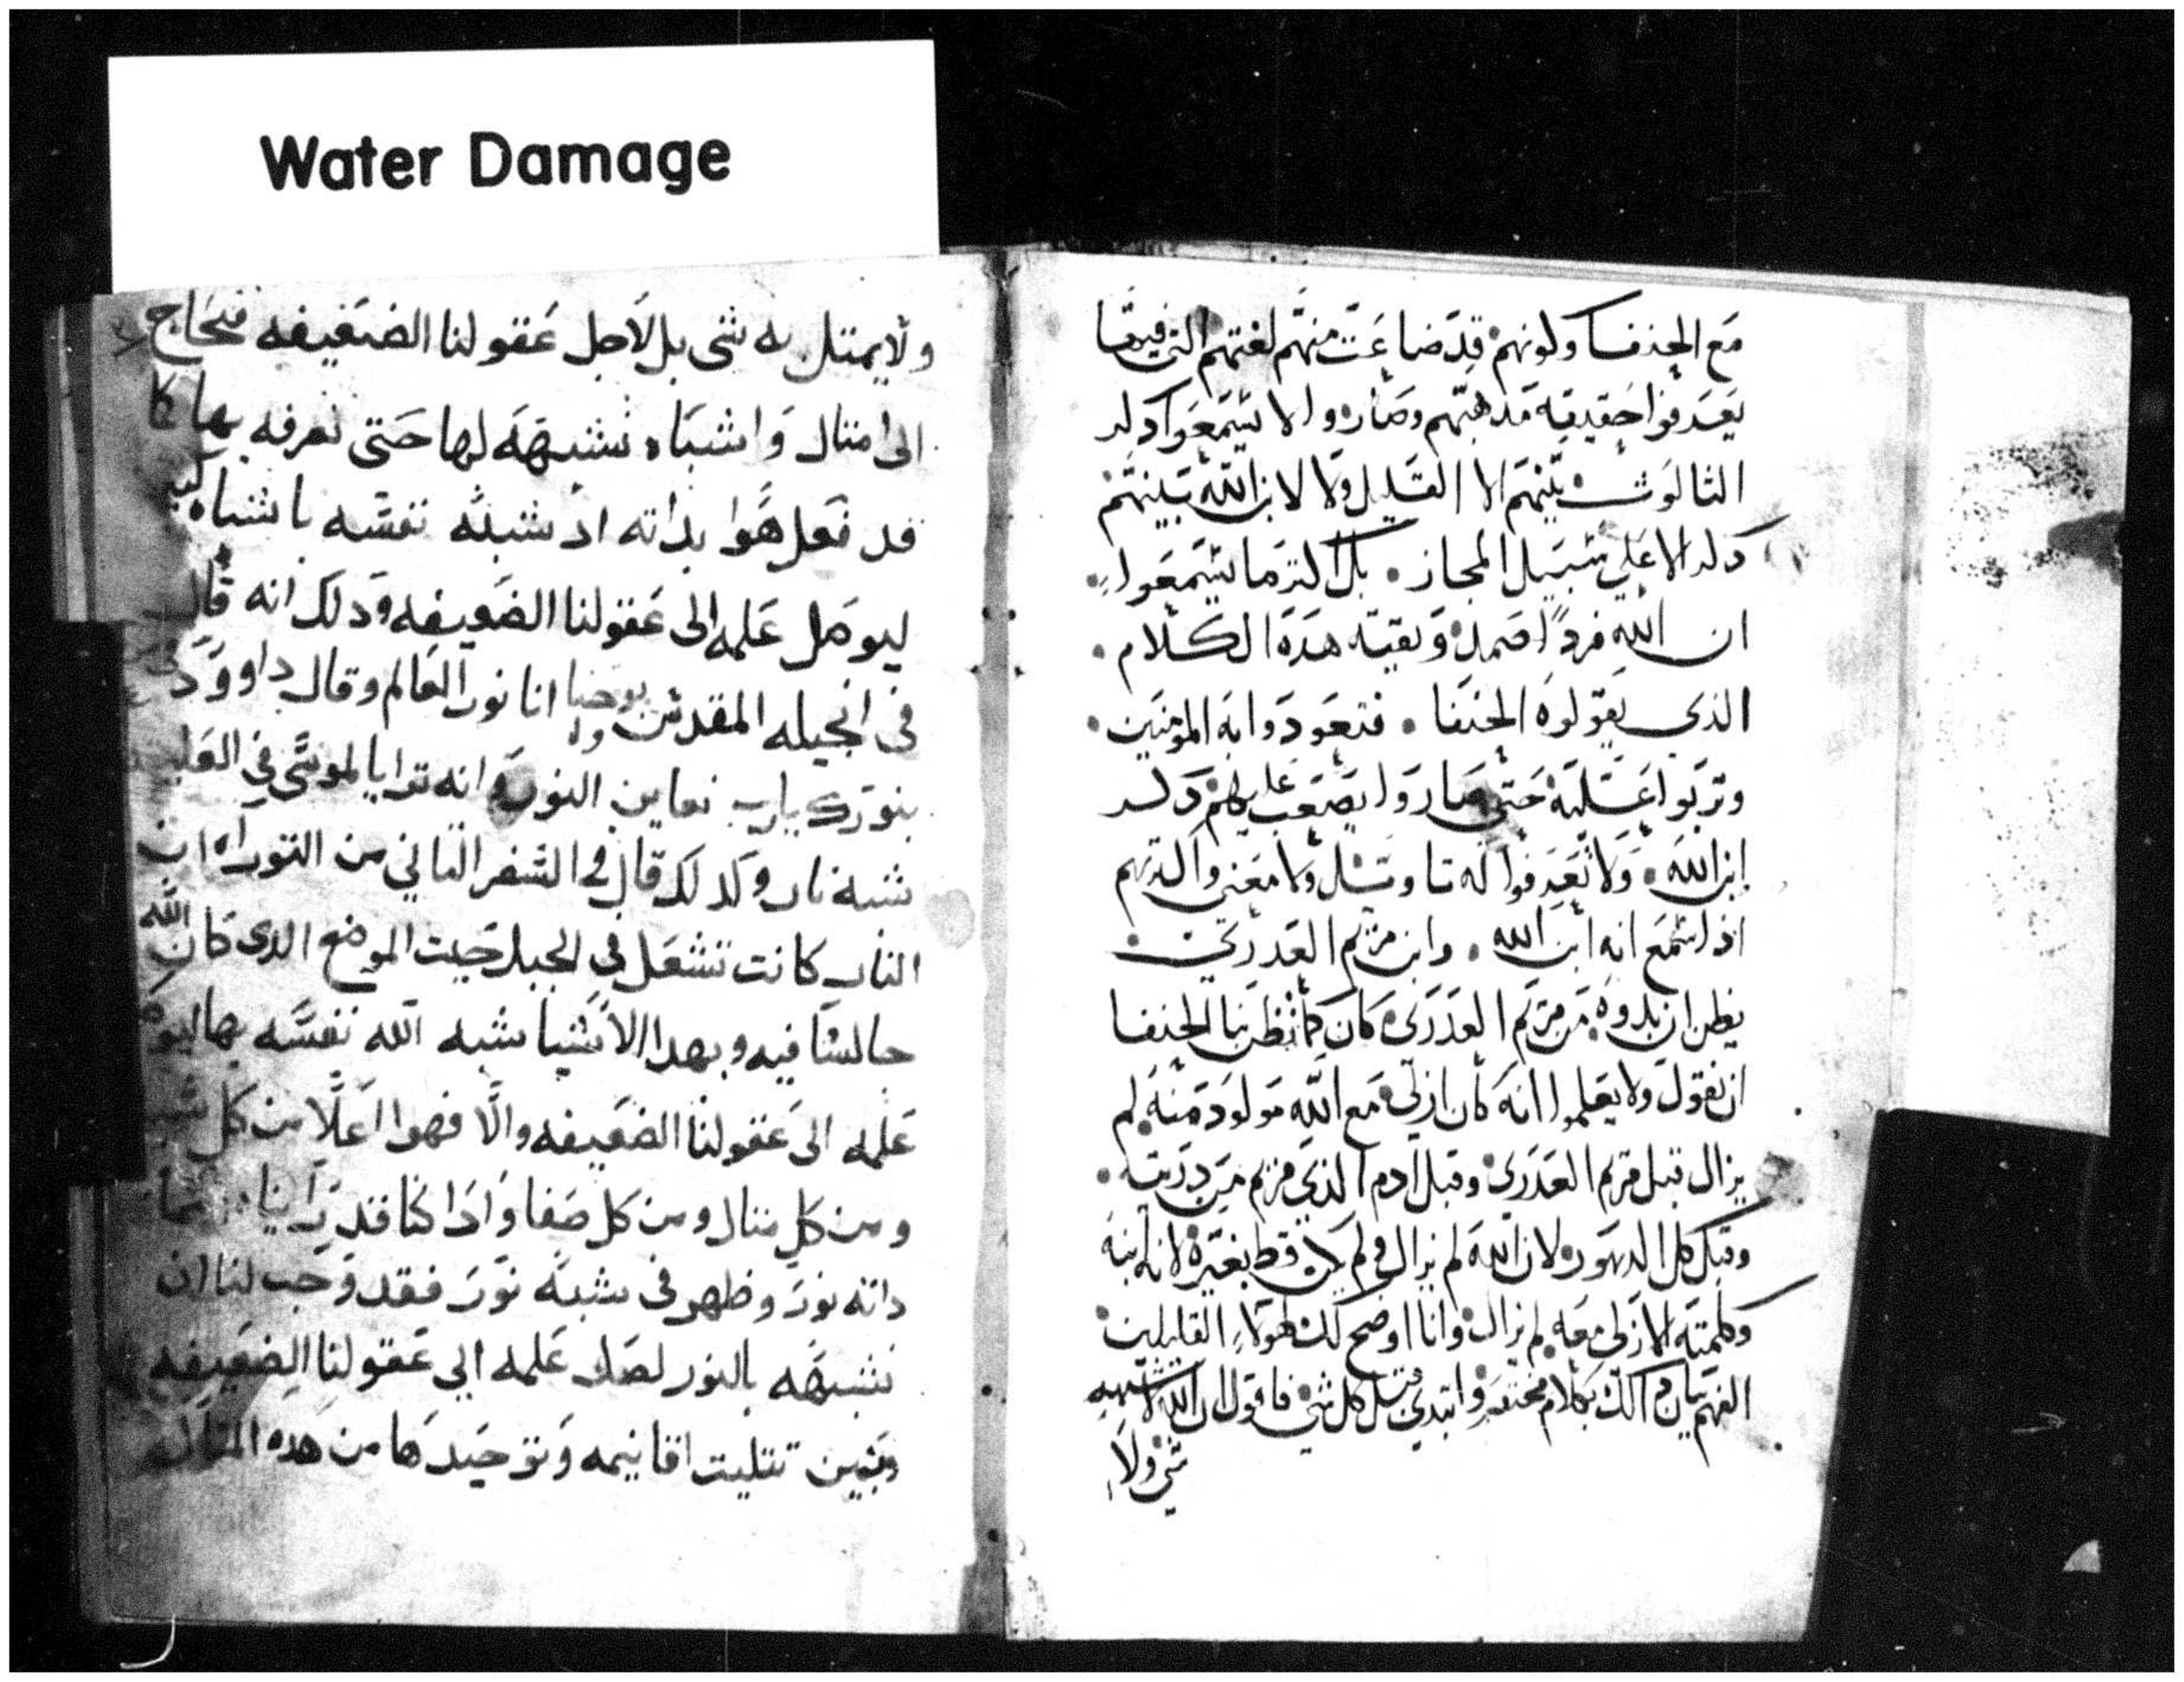 Water Damage
مع الحنفا ولونهم قد ضاعت منهم لغتهم التى فيها
يعرفوا حقيقة مدهبهم وصاروا لا يسمعوا دلر
الثالوث بينهم الا القليل ولا لابن الله بينهم
دلر الا على سبيل المجاز . بل اكثر ما يسمعوا
ان الله فردًا صمد وبقية هده الكلام .
الذى يقولوه الحنفا . فتعودوا به المومنين .
وتربوا عليه حتى صاروا يصعب عليهم دلر
ابن الله . ولا يعرفوا له تاويل ولا معنى واكثرهم
اذا سمع انه ابن الله . وابن مريم العدرى .
يظن ان بدوه من مريم العدرى كان كما تظن بنا الحنفا
ان نقول ولا يعلموا انه كان ازلى مع الله مولود منه لم
يزال قبل مريم العدرى وقبل ادم الذى مريم من دريته .
وقبل كل الدهور لان الله لم يزال ولم يكن قط بغيره لانه ابنه
وكلمته الازلى معه لم يزال وانا اوضح لك هولاء القليلين
الفهم بيان دالك بكلام مختصر وابتدى قبل كل شى فاقول ان الله لا يشبهه
شى ولا
ولا يمتل به شى بل لاجل عقولنا الضعيفه فتحتاج
الى امتال واشباه نشبهه لها حتى نعرفه بها كا
قد فعل هوا بداته اد شبه نفسه باشباه
ليوصل علمه الى عقولنا الضعيفه ودلك انه قال
فى انجيله المقدس يوحنا انا نور العالم وقال داوود
بنورك يارب نعاين النور وانه ترايا لموسى فى العليـ
شبه نار وكدلك قال فى السفر التاني من التوراه ان
النار كانت تشعل فى الجبل حيت الموضع الدى كان الله
جالسا فيه وبهدا الاشيا شبه الله نفسه بها
علمه الى عقولنا الضعيفه والا فهوا اعلا من كل
ومن كل متال ومن كل صفا وادا كنا قد راينا
داته نور وظهر فى شبه نور فقد وجب لنا ان
نشبهه بالنور لصل علمه الى عقولنا الضعيفه
ونبين تتليت اقانيمه وتوحيدها من هده المتاله